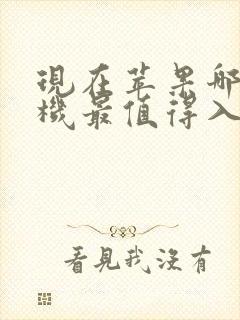 現在苹果哪
機最值得入
看見我沒有